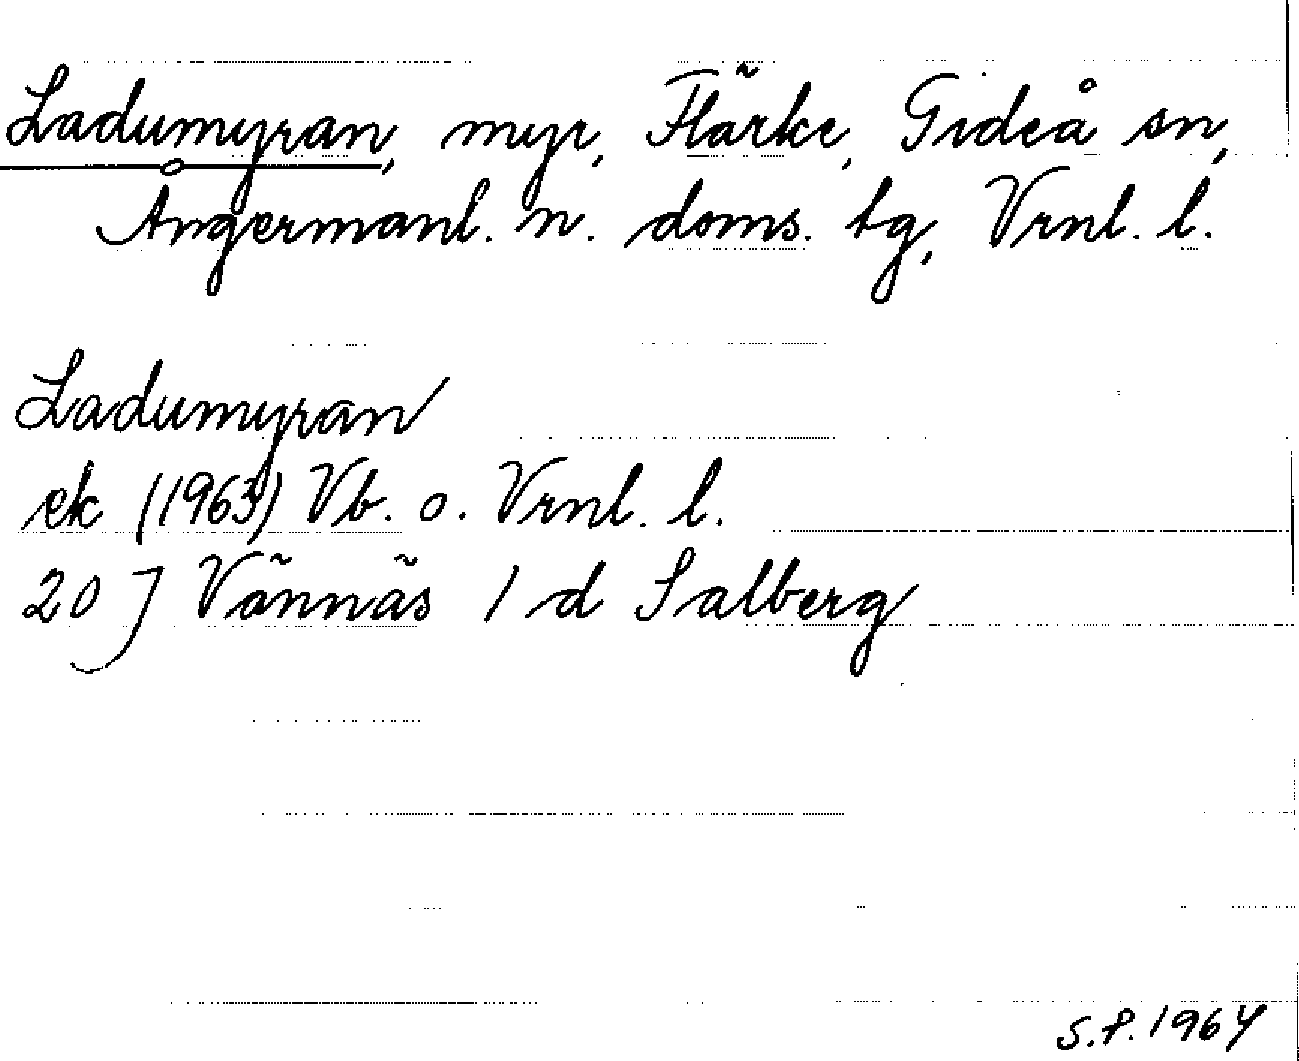 Ladumyran, myr, Flärke, Gideå sn,
Ångermanl. n. doms. tg, Vrnl. l.
Ladumyran
ek (1963) Vb. o. Vrnl. l.
20 J Vännäs 1 d Salberg
S.P. 1964